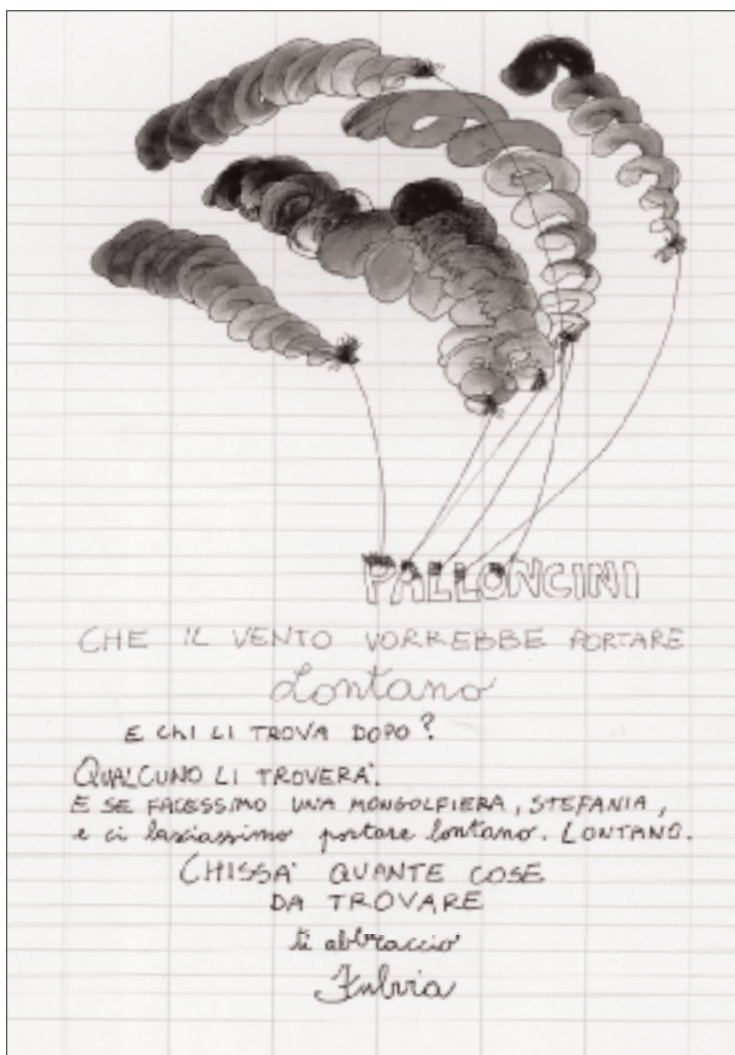 PALLONCINI
CHE IL VENTO VORREBBE PORTARE
Lontano
E CHI LI TROVA DOPO?
QUALCUNO LI TROVERÀ.
E SE FACESSIMO UNA MONGOLFIERA, STEFANIA,
e ci lasciassimo portare lontano. LONTANO.
CHISSA' QUANTE COSE
DA TROVARE
ti abbraccio
Fulvia